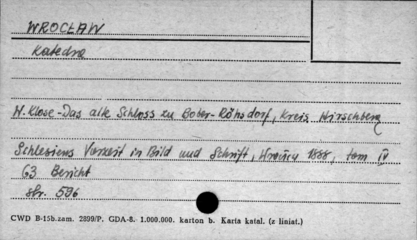 WROCŁAW
Katedra
H. Klose - Das alte Schloss zu Bober-Röhrsdorf, Kreis Hirschberg
Schlesiens Vorzeit in Bild und Schrift, 1888, tom IV
63 Bericht
str. 506
CWD B-15b.zam. 2899/P. GDA-8. 1.000.000. karton b. Karta katal. (z liniat.)